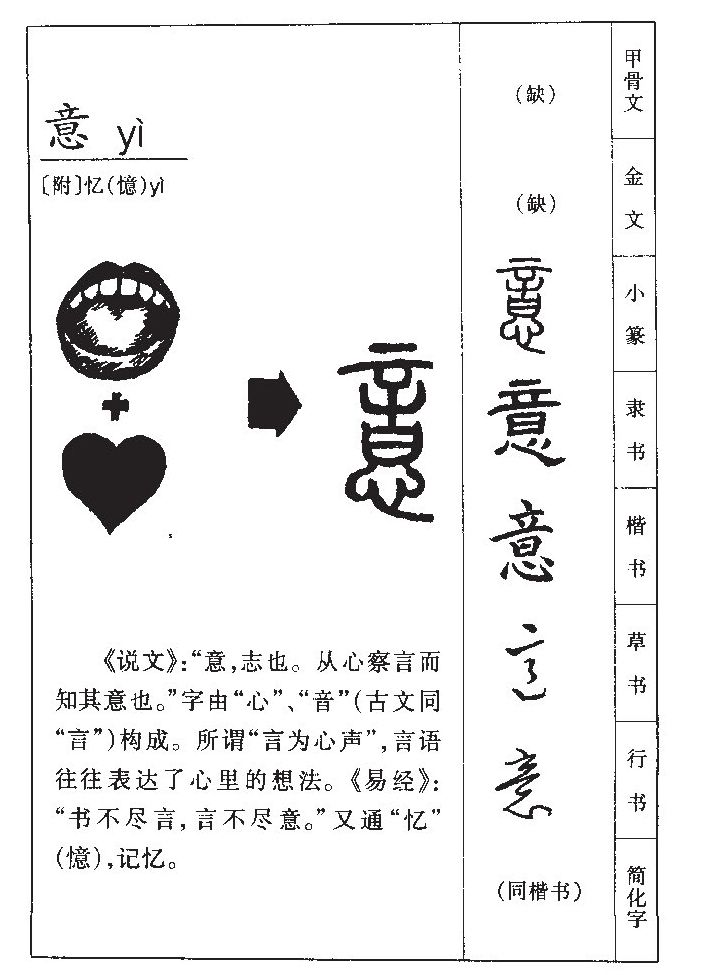 意 yì
〔附〕忆(憶)yì
意
《说文》:“意,志也。从心察言而
知其意也。”字由“心”、“音”(古文同
“言”)构成。所谓“言为心声”,言语
往往表达了心里的想法。《易经》:
“书不尽言,言不尽意。”又通“忆”
(憶),记忆。
(缺)
甲骨文
(缺)
金文
意
小篆
意
隶书
意
楷书
意
草书
意
行书
(同楷书)
简化字